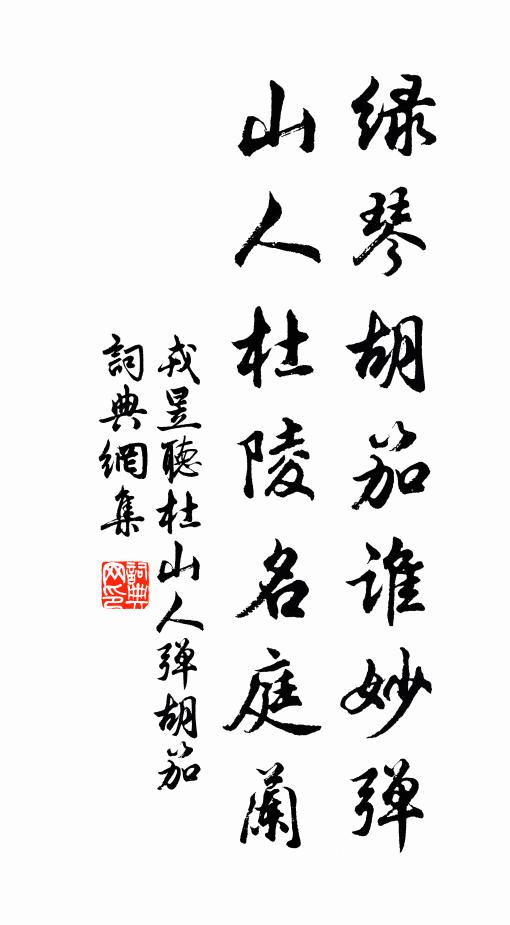 绿琴胡笳谁妙弹
山人杜陵名庭蘭
戎昱聽杜山人弹胡笳
詞典網集
詞典网印